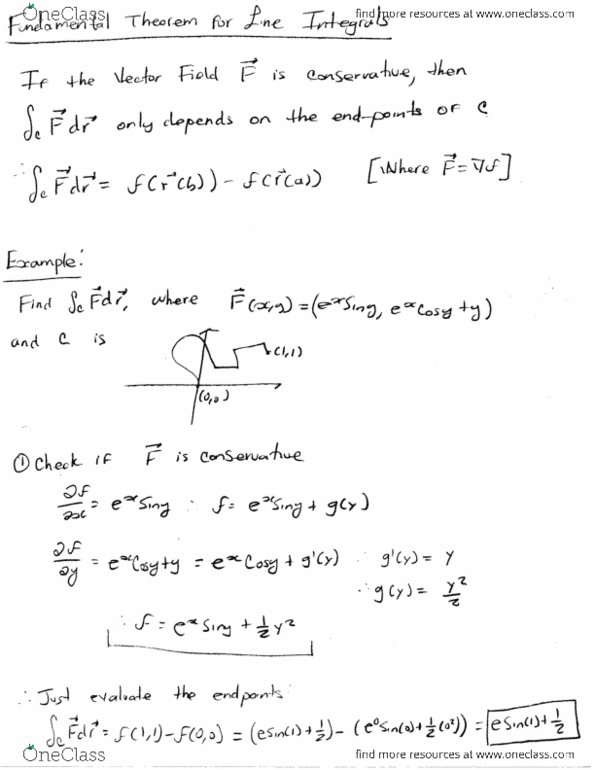 OneClass find more resources at www.oneclass.com
Fundamental Theorem for Line Integrals
If the Vector Field F⃗ is conservative, then
∫c F⃗dr⃗ only depends on the end-points of C
∴ ∫c F⃗dr⃗ = f(r⃗(b)) - f(r⃗(a)) [Where F⃗ = ∇f]
Example:
Find ∫c F⃗dr⃗, where F⃗(x,y) = (e^x Sin y, e^x Cos y + y)
and C is
(1,1)
(0,0)
① Check if F⃗ is conservative
∂f/∂x = e^x Sin y ∴ f = e^x Sin y + g(y)
∂f/∂y = e^x Cos y + y = e^x Cos y + g'(y) ∴ g'(y) = y
∴ g(y) = y²/2
∴ f = e^x Sin y + 1/2 y²
∴ Just evaluate the endpoints:
∫c F⃗dr⃗ = f(1,1) - f(0,0) = (e sin(1) + 1/2) - (e⁰ Sin(0) + 1/2(0²)) = e Sin(1) + 1/2
OneClass find more resources at www.oneclass.com